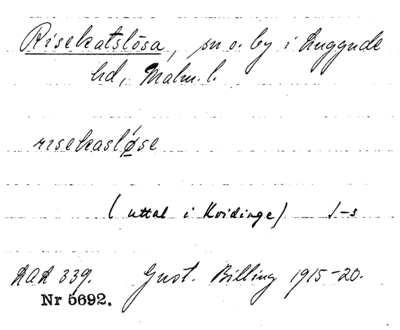 Risekatslösa, sn o. by i Luggude
hd, Malm. l.
risekasløse
(uttal i Kvidinge) l-s
AOA 339. Gust. Billing 1915-20.
Nr 5692.